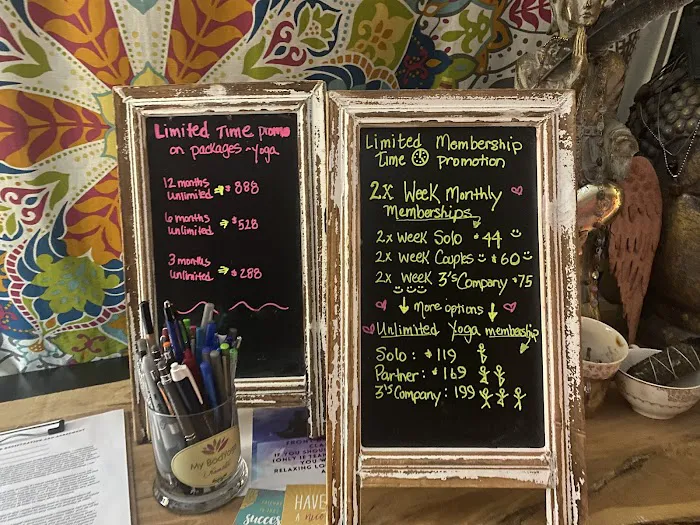 Limited Time promo
on packages ~yoga
12 months
unlimited → $888
6 months
unlimited → $528
3 months
unlimited → $288
Limited Membership
Time promotion
2x Week Monthly
Memberships
2x week Solo $44
2x week Couples $60
2x week 3'sCompany $75
More options
Unlimited Yoga membership
Solo: $119
Partner: $169
3'sCompany: 199
My Bodyful
IF YOU
RELAXING
success
HAVE